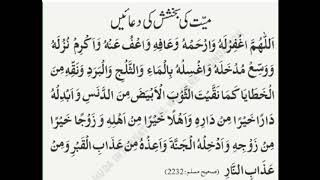 میّت کی بخشش کی دعائیں
اَللّٰهُمَّ اغْفِرْلَهُ وَارْحَمْهُ وَعَافِهِ وَاعْفُ عَنْهُ وَاَكْرِمْ نُزُلَهُ
وَوَسِّعْ مُدْخَلَهُ وَاغْسِلْهُ بِالْمَاءِ وَالثَّلْجِ وَالْبَرَدِ وَنَقِّهِ مِنَ
الْخَطَايَا كَمَا نَقَّيْتَ الثَّوْبَ الْاَبْيَضَ مِنَ الدَّنَسِ وَاَبْدِلْهُ
دَارًا خَيْرًا مِنْ دَارِهِ وَاَهْلًا خَيْرًا مِنْ اَهْلِهِ وَ زَوْجًا خَيْرًا
مِنْ زَوْجِهِ وَاَدْخِلْهُ الْجَنَّةَ وَاَعِذْهُ مِنْ عَذَابِ الْقَبْرِ وَمِنْ
عَذَابِ النَّارِ (صحیح مسلم:2232)